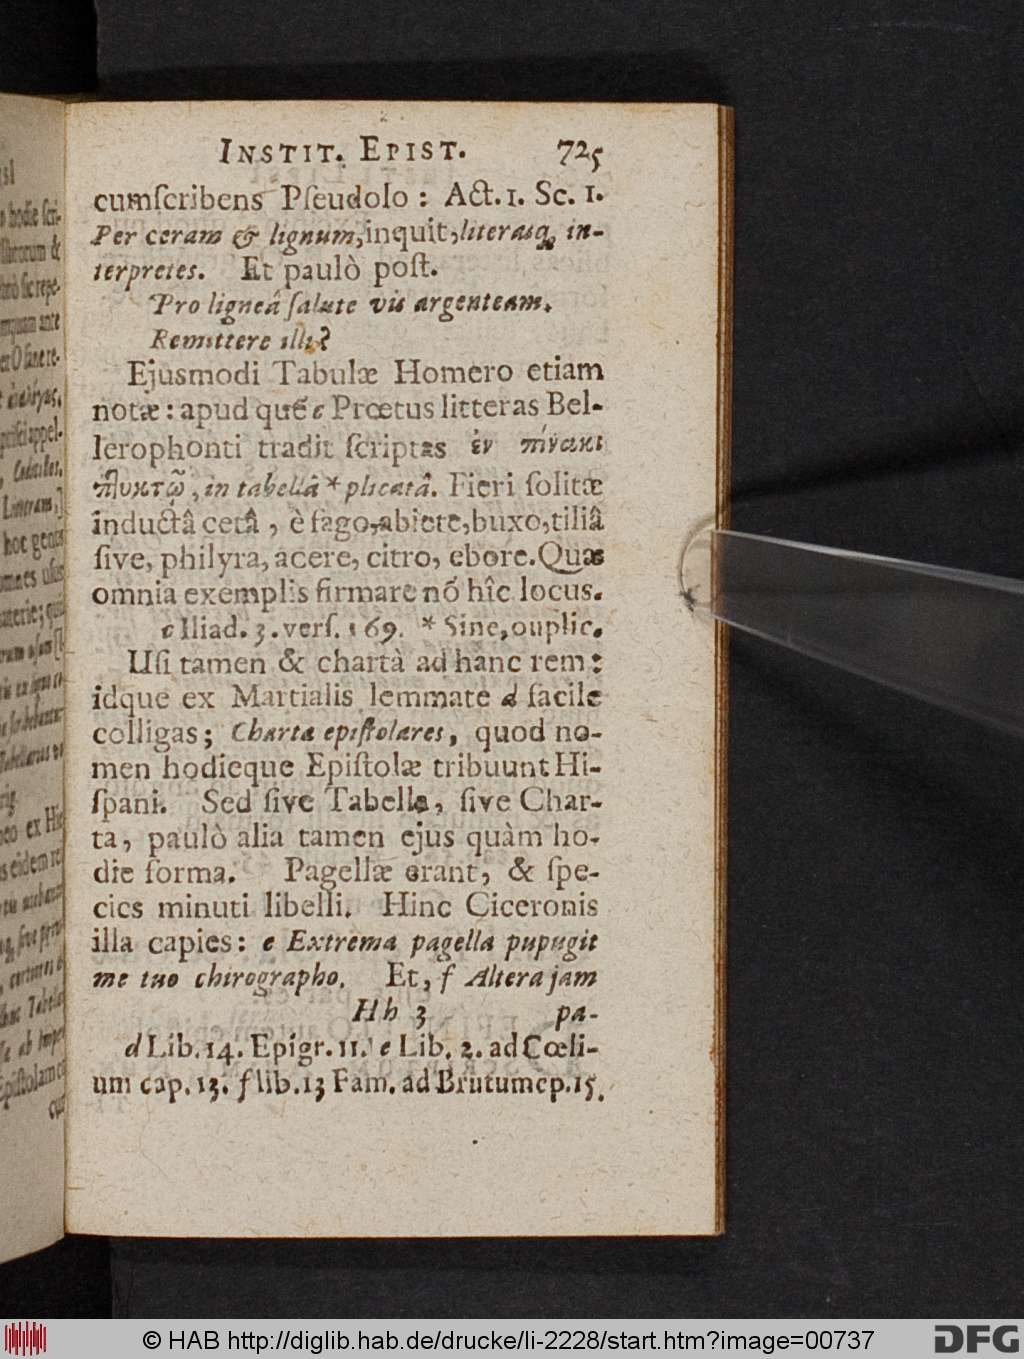 INSTIT. EPIST. 725
cumſcribens Pſeudolo : Act. 1. Sc. 1.
Per ceram & lignum, inquit, literasq́; in-
terpretes. Et paulò poſt.
Pro ligneâ ſalute vis argenteam.
Remittere illi?
Ejusmodi Tabulæ Homero etiam
notæ : apud quẽ c Prœtus litteras Bel-
lerophonti tradit ſcriptas ἐν πίνακι
πτυκτῷ, in tabellâ * plicatâ. Fieri ſolitæ
inductâ cerâ, è fago, abiete, buxo, tiliâ
ſive, philyra, acere, citro, ebore. Quæ
omnia exemplis firmare nõ hîc locus.
c Iliad. 3. verſ. 169. * Sine, ouplic.
Uſi tamen & chartà ad hanc rem :
idque ex Martialis lemmate d facile
colligas ; Charta epiſtolares, quod no-
men hodieque Epiſtolæ tribuunt Hi-
ſpani. Sed ſive Tabella, ſive Char-
ta, paulò alia tamen ejus quàm ho-
die forma. Pagellæ erant, & ſpe-
cies minuti libelli. Hinc Ciceronis
illa capies : e Extrema pagella pupugit
me tuo chirographo. Et, f Altera jam
Hh 3 pa-
d Lib. 14. Epigr. 11. e Lib. 2. ad Cœli-
um cap. 13. f lib. 13 Fam. ad Brutum ep. 15.
© HAB http://diglib.hab.de/drucke/li-2228/start.htm?image=00737
DFG